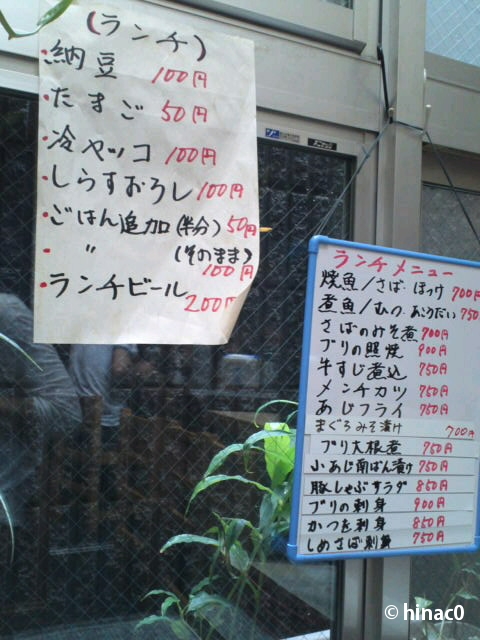 (ランチ)
・納豆 100円
・たまご 50円
・冷ヤッコ 100円
・しらすおろし 100円
・ごはん追加(半分) 50円
・ 〃 (そのまま) 100円
・ランチビール 200円
ランチメニュー
焼魚/さば ほっけ 700円
煮魚/むつ あこうだい 750
さばのみそ煮 700円
ブリの照焼 900円
牛すじ煮込 750円
メンチカツ 750円
あじフライ 750円
まぐろみそ漬け 700円
ブリ大根煮 750円
小あじ南ばん漬け 750円
豚しゃぶサラダ 850円
ブリの刺身 900円
かつを刺身 850円
しめさば刺身 750円
© hinac0